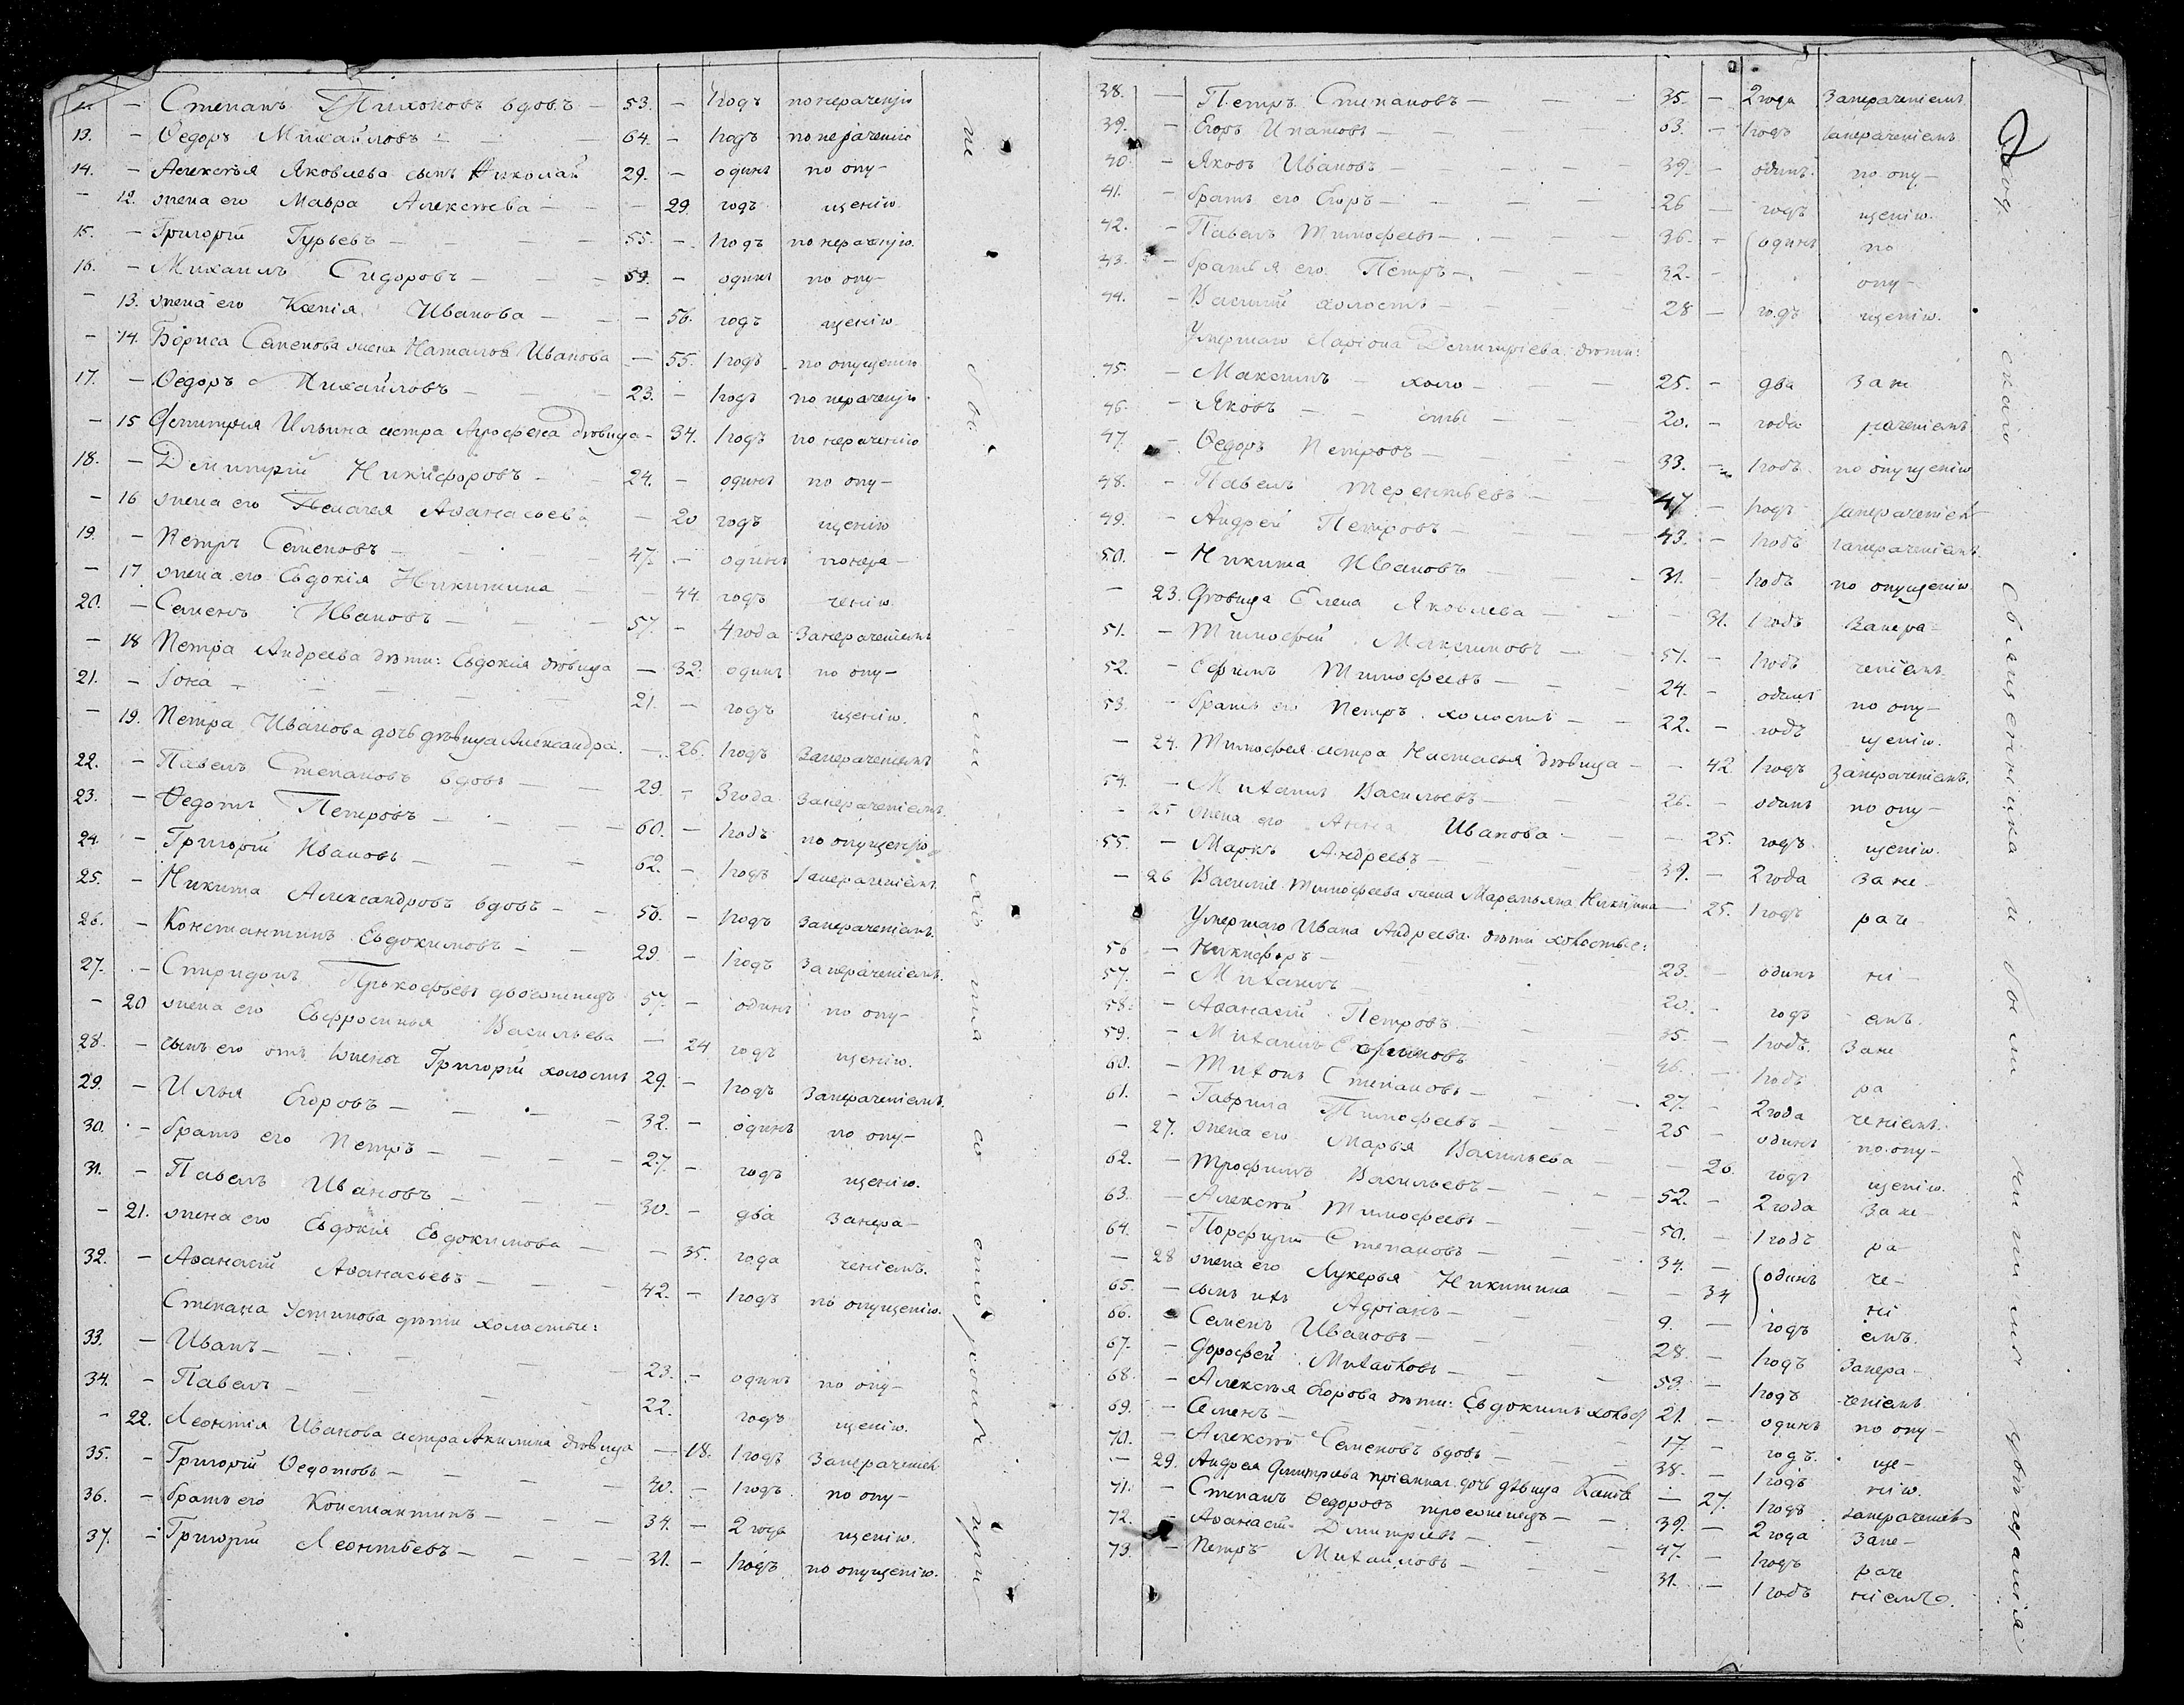 — Степанъ Тихоновъ вдовъ — 53. — 1 годъ по нераченію
13. — Ѳедоръ Михайловъ — — 64. — 1 годъ по нераченію
14. — Алексѣя Яковлева сынъ Николай 29. — одинъ по опу-
— 12. жена его Мавра Алексѣева — — 29. годъ щенію
15. — Григорій Гурьевъ — — — 55. — 1 годъ по нераченію.
16. — Михаилъ Сидоровъ — — 59. — одинъ по опу-
— 13. жена его Ксенія Иванова — — 56. годъ щенію
— 14. Бориса Семенова жена Наталья Иванова — 55. 1 годъ по опущенію
17. — Ѳедоръ Михайловъ — — 23. — 1 годъ по нераченію.
— 15 Дмитрія Ильина сестра Агрофена дѣвица — 34. 1 годъ по нераченію
18. — Димитрій Никифоровъ — 24. — одинъ по опу-
— 16 жена его Пелагея Аѳанасьева — 20 годъ щенію
19. — Петръ Семеновъ — — 47. — одинъ по нера-
— 17. жена его Евдокія Никитина — — 44. годъ ченію.
20. — Семенъ Ивановъ — — — 57. — 4 года за нераченіемъ
— 18 Петра Андреева дѣти: Евдокія дѣвица — 32. одинъ по опу-
21. — Іона — — — — 21. — годъ щенію.
— 19. Петра Иванова дочь дѣвица Александра. — 26. 1 годъ за нераченіемъ
22. — Павелъ Степановъ вдовъ — — 29. — 3 года за нераченіемъ.
23. — Ѳедотъ Петровъ — — — 60. — 1 годъ по опущенію
24. — Григорій Ивановъ — — — 62. — 1 годъ за нераченіемъ.
25. — Никита Александровъ вдовъ — — 56. — 1 годъ за нераченіемъ.
26. — Константинъ Евдокимовъ — — 29. — 1 годъ за нераченіемъ.
27. — Спиридонъ Прокофьевъ двоеженецъ 57. — одинъ по опу-
— 20 жена его Евфросинья Васильева — 24 годъ щенію.
28. — сынъ его отъ 1 жены Григорій холостъ 29. — 1 годъ за нераченіемъ.
29. — Илья Егоровъ — — — 32. — одинъ по опу-
30. — братъ его Петръ — — — 27. — годъ щенію.
31. — Павелъ Ивановъ — — 30. — два за нера-
— 21. жена его Евдокія Евдокимова — — 35. года ченіемъ.
32. — Аѳанасій Аѳанасьевъ — — — 42. — 1 годъ по опущенію.
Степана Устинова дѣти холостые:
33. — Иванъ — — — — 23. — одинъ по опу-
34. — Павелъ — — — 22. годъ щенію.
— 22. Леонтія Иванова сестра Акилина дѣвица — 18. 1 годъ за нераченіем
35. — Григорій Ѳедотовъ — — — 40. — 1 годъ по опу-
36. — братъ его Константинъ — — — 34. — 2 года щенію.
37. — Григорій Леонтьевъ — — — — 31. — 1 годъ по опущенію.
38. — Петръ Степановъ — — — 35. — 2 года за нераченіемъ
39. — Егоръ Ипатовъ — — — 63. — 1 годъ за нераченіемъ
40. — Яковъ Ивановъ — — — 39. — одинъ по опу-
41. — братъ его Егоръ — — — 26 — годъ щенію.
42. — Павелъ Тимофеевъ — — — 36. — одинъ по
43. — братья его Петръ — — — 32. — опу-
44. — Василій холостъ — — — 28 — годъ щенію.
Умершаго Ларіона Димитріева дѣти:
45. — Максимъ — холо — — 25. — два за не
46. — Яковъ — — сты — 20. — года раченіемъ
47. — Ѳедоръ Петровъ — — 33. — 1 годъ по опущенію
48. — Павелъ Терентьевъ — — 47. — 1 годъ за нераченіем
49. — Андрей Петровъ — — 43. — 1 годъ за нераченіемъ.
50. — Никита Ивановъ — — 31. — 1 годъ по опущенію
— 23. Дѣвица Елена Яковлева — — — 31. 1 годъ за нера-
51. — Тимофей Максимовъ — — 51. — 1 годъ ченіемъ.
52. — Ефимъ Тимофеевъ — — — 24. — одинъ по опу-
53. — братъ его Петръ холостъ — — 22. — годъ щенію.
— 24. Тимофея сестра Настасья дѣвица — — 42. 1 годъ за нераченіемъ.
54. — Михаилъ Васильевъ — — — 26. — одинъ по опу-
— 25 жена его Анна Иванова — — 25. годъ щенію.
55. — Маркъ Андреевъ — — 39. — 2 года за не-
— 26 Василія Тимофеева жена Маремьяна Никитина — 25. 1 годъ раче
Умершаго Ивана Андреева дѣти холостые:
56 — Никифоръ — — 23. — одинъ ні-
57. — Михаилъ — — 20. — годъ емъ.
58. — Аѳанасій Петровъ — 35. — 1 годъ за не
59. — Михаилъ Ефимовъ — 46. — 1 годъ ра
60. — Тихонъ Степановъ — — 27. — 2 года ченіемъ.
61. — Гаврила Тимофеевъ — — — 25 — одинъ по опу-
— 27. жена его Марья Васильева — — 20. годъ щенію.
62. — Трофимъ Васильевъ — — — 52. — 2 года за не-
63. — Алексѣй Тимофеевъ — — 50. — 1 годъ ра-
64. — Порфирій Степановъ — — 34. — одинъ че-
— 28 жена его Лукерья Никитина — — 34 ні
65. — сынъ ихъ Адріанъ — — 9. — годъ емъ.
66. Семенъ Ивановъ — — — 28. — 1 годъ за нера-
67. — Дорофей Михайловъ — — — 53. — 1 годъ ченіемъ
68. — Алексѣя Егорова дѣти: Евдокимъ холост 21. — одинъ по опу-
69. — Семенъ — — — 17. — годъ. ще-
70. — Алексѣй Семеновъ вдовъ — — 38. — 1 годъ нію.
— 29. Андрея Дмитріева пріемная дочь дѣвица — 27. 1 годъ за нераченіемъ
71. — Степанъ Ѳедоровъ троеженецъ — — 39. — 2 года за не-
72. — Аѳанасій Димитріевъ — — — 47. — 1 годъ раче
73. — Петръ Михайловъ — — 31. — 1 годъ ніемъ.
священника